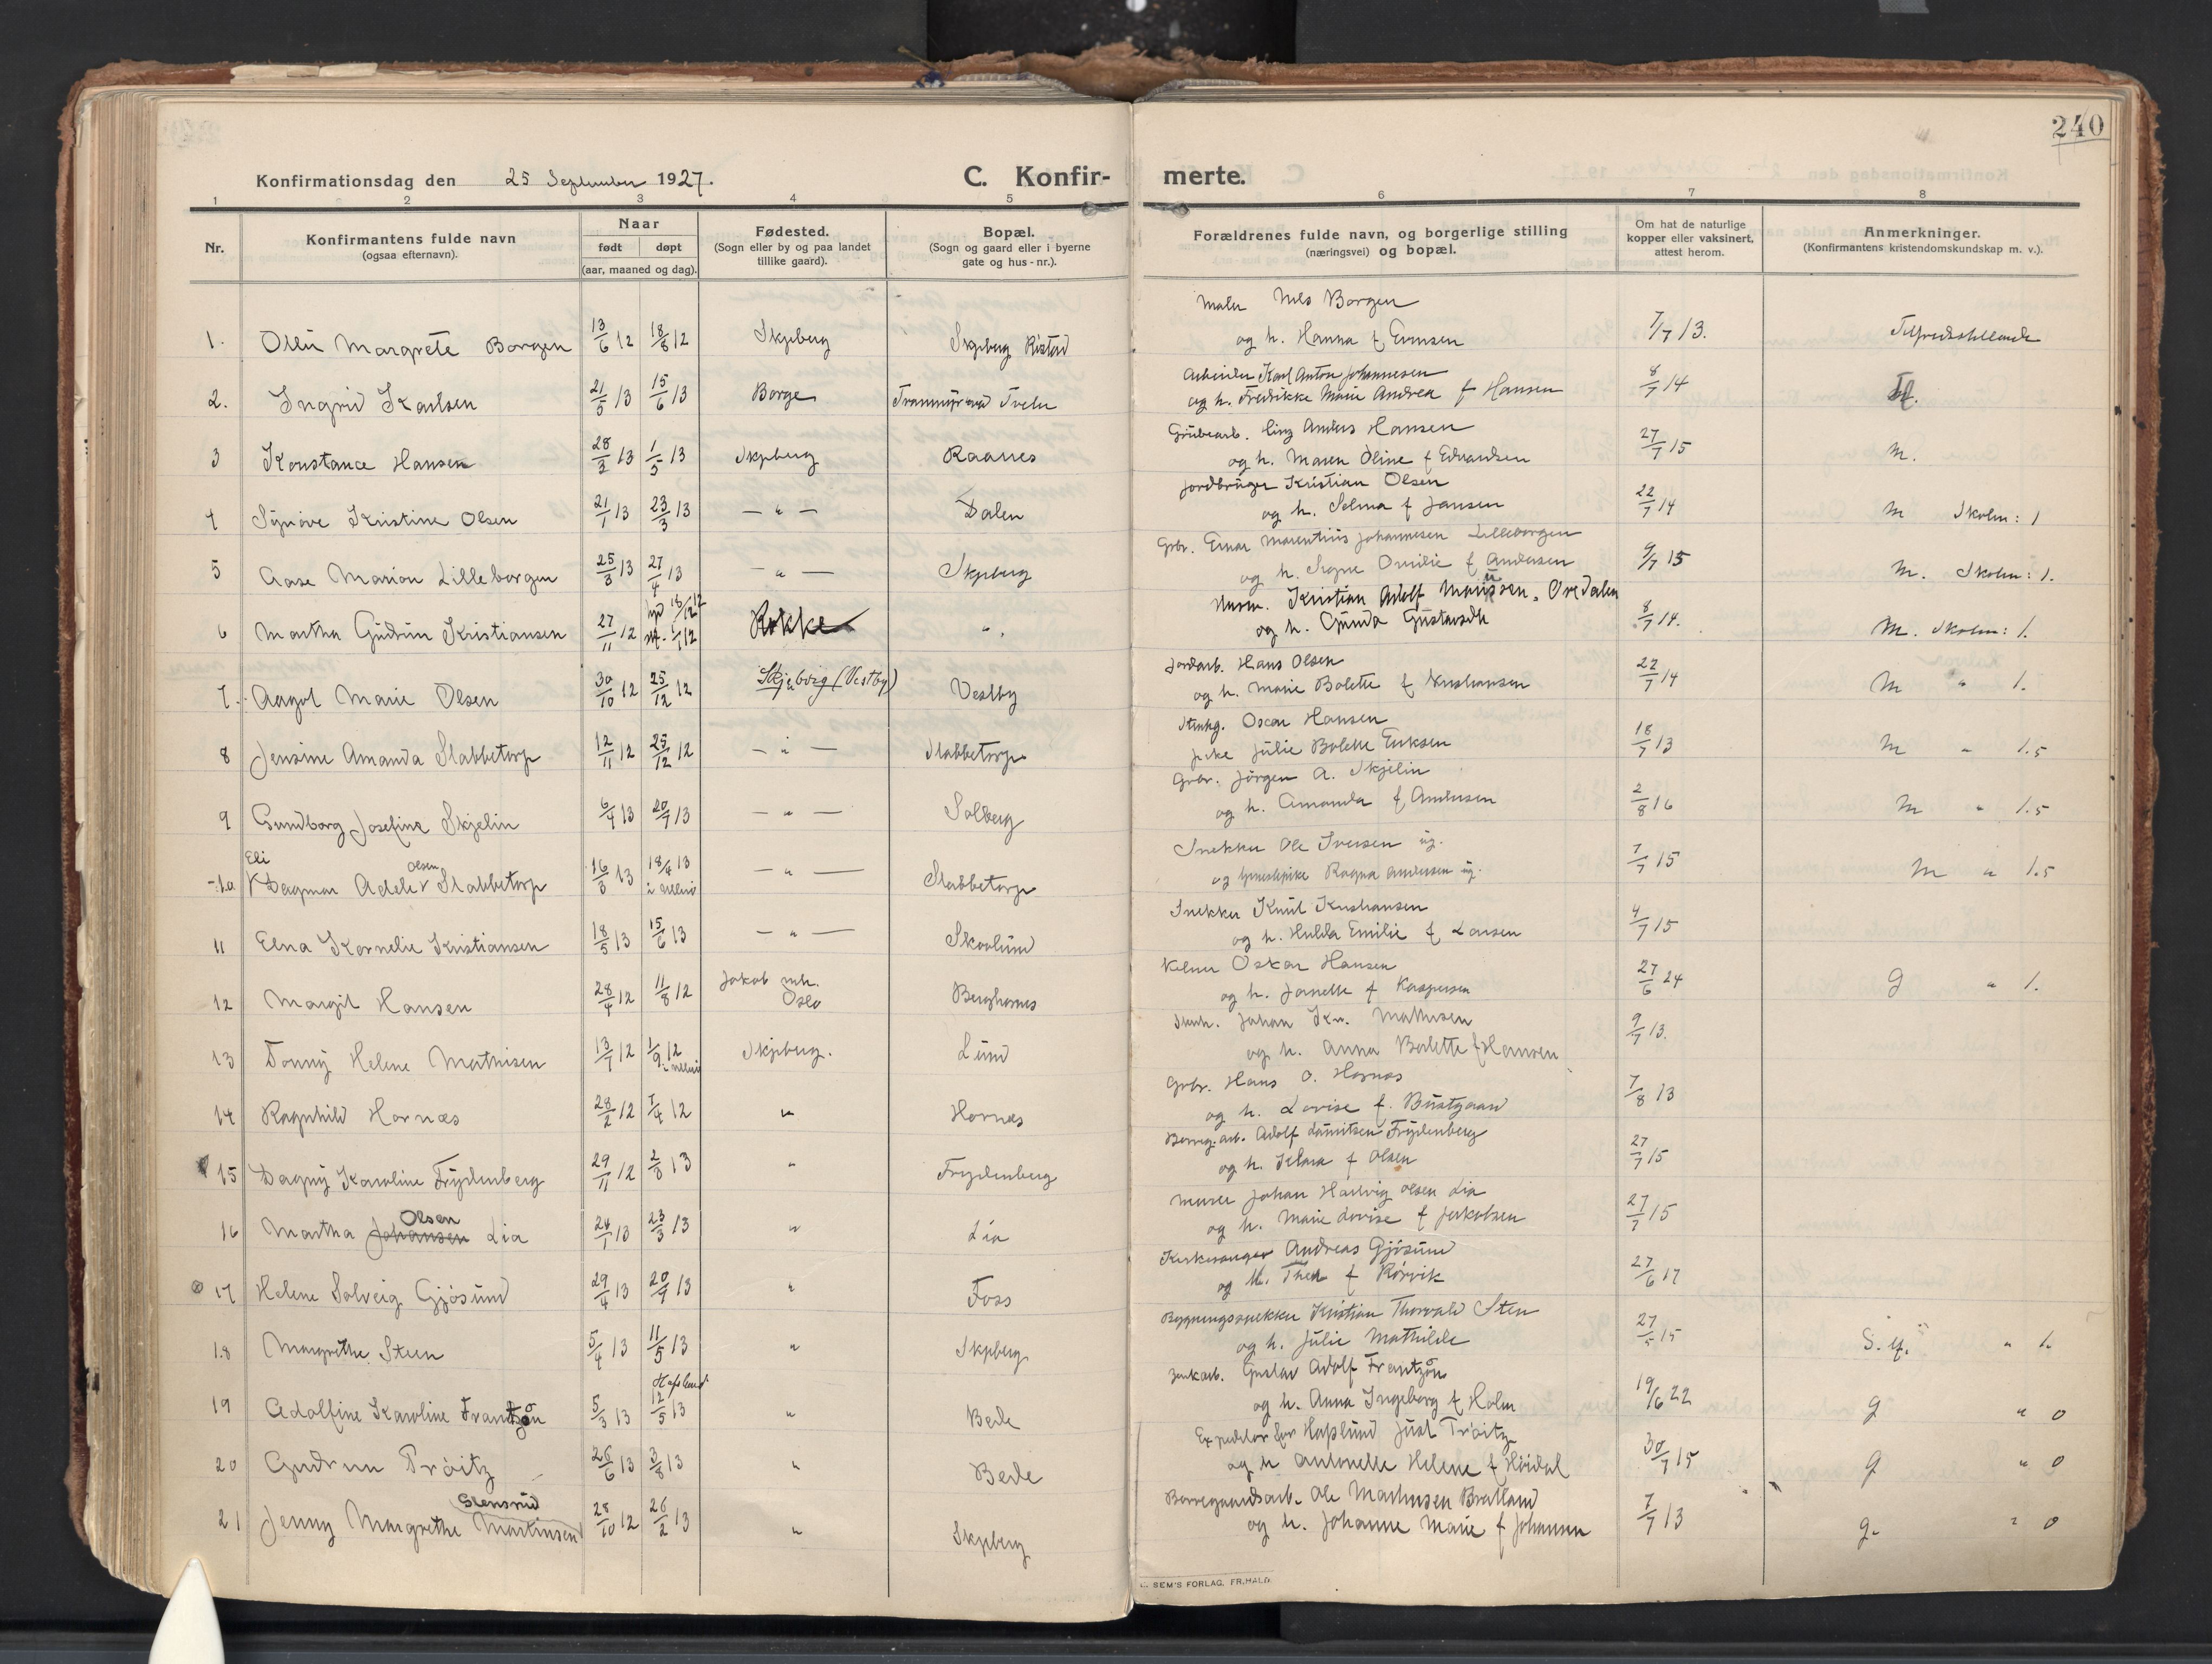 240
Konfirmationsdag den 25 September 1927.
C. Konfir- merte.
1 2 3 4 5 6 7 8
Nr.
Konfirmantens fulde navn
(ogsaa efternavn).
Naar
født døpt
(aar, maaned og dag).
Fødested.
(Sogn eller by og paa landet
tillike gaard).
Bopæl.
(Sogn og gaard eller i byerne
gate og hus-nr.).
Forældrenes fulde navn, og borgerlige stilling
(næringsvei) og bopæl.
Om hat de naturlige
kopper eller vaksinert,
attest herom.
Anmerkninger.
(Konfirmantens kristendomskundskap m. v.).
Maler Nils Borgen
1. Margrete Borgen 13/6 12 18/8 12 Skjeberg Skjeberg og h. Hanna f Evensen 7/7 13. Tilfredsstillende
Arbeider Karl Anton Johannesen
2. Ingrid Karlsen 21/5 13 15/6 13 Borge og h. Fredrikke Marie Andrea f Hansen 8/7 14 Tf.
Grubearb. Anders Hansen
3 Konstance Hansen 28/3 13 1/5 13 Skjeberg Raanes og h. Maren Oline f Edvardsen 27/7 15 M.
Jordbruger Kristian Olsen
4 Synöve Kristine Olsen 21/1 13 23/3 13 — " — Dalen og h. Selma f Jansen 22/7 14 M Skolm: 1
Grbr. Einar Marentius Johannesen Lilleborgen
5 Aase Marion Lilleborgen 25/3 13 27/4 13 — " — Skjeberg og h. Signe Omilie f Andersen 9/7 15 M. Skolm: 1.
Kristian Adolf
6 Martha Gudrun Kristiansen 27/11 12 Rokke " og h. Gunda Gustavsdtr 8/7 14. M. Skolm: 1.
Jordarb. Hans Olsen
7. Aagot Marie Olsen 30/10 12 25/12 12 Skjeberg (Vestby) Vestby og h. Marie Bolette f Kristiansen 22/7 14 M " 1.
Stenhg. Oscar Hansen
8 Jensine Amanda Slabbetorp 12/11 12 25/12 12 — " — Slabbetorp pike Julie Bolette Eriksen 18/7 13 M " 1.5
Grbr. Jörgen A. Skjelin
9 Gundborg Josefine Skjelin 6/4 13 20/7 13 — " — Solberg og h. Amanda f Andersen 2/8 16 M " 1.5
Eli Olsen
Snekker Ole Iversen ug.
10 Dagmar Adele Slabbetorp 16/3 13 18/4 13 — " — Slabbetorp og tjenestepike Ragna Andersen ug. 7/7 15 M " 1.5
Snekker Knut Kristiansen
11 Elna Kornelie Kristiansen 18/5 13 15/6 13 — " — Skovlund og h. Hulda Emilie f Larsen 4/7 15
Kelner Oskar Hansen
12 Margit Hansen 28/4 12 11/8 12 Jakob mh. Oslo Berghornes og h. Janette f Kaspersen 27/6 24 G " 1.
Stenh. Johan Kr. Mathisen
13 Tonny Helene Mathisen 13/7 12 1/9 12 Skjeberg. Lund og h. Anna Bolette f Hansen 9/7 13.
Grbr. Hans O. Hornæs
14 Ragnhild Hornæs 28/2 12 7/4 12 " Hornæs og h. Lovise f. Bustgaard 7/8 13
Borreg. arb. Adolf Lauritsen Frydenberg
15 Dagny Karoline Frydenberg 29/11 12 2/3 13 " Frydenberg og h. Klara f Olsen 27/7 15
Olsen
Murer Johan Hartvig Olsen Lia
16 Martha Johansen Lia 24/1 13 23/3 13 " Lia og h. Marie Lovise f Jakobsen 27/7 15
Kirkesanger Andreas Gjösund
17 Helene Solveig Gjösund 29/4 13 20/7 13 " Foss og h. Thea f Rörvik 27/6 17
Bygningssnekker Kristian Thorvald Sten
18 Margrethe Steen 5/4 13 11/5 13 " Skjeberg og h. Julie Mathilde 27/5 15 " 1.
Gustav Adolf Frantzön
19 Adolfine Karoline Frantzön 5/3 13 12/5 13 " Bede og h. Anna Ingeborg f Holm 19/6 22 G " 0
Expeditör for Hafslund Just Tröitz
20 Gudrun Tröitz 26/6 13 3/8 13 " Bede og h Antonette Helene f Höidal 30/7 15 G " 0
Stensrud
Borregaardsarb. Ole Martinsen Bratland
21 Jenny Margrethe Martinsen 28/10 12 26/2 13 " Skjeberg og h. Johanne Marie f Johansen 7/7 13 G. " 0
SEM'S FORLAG, FR.HALD.